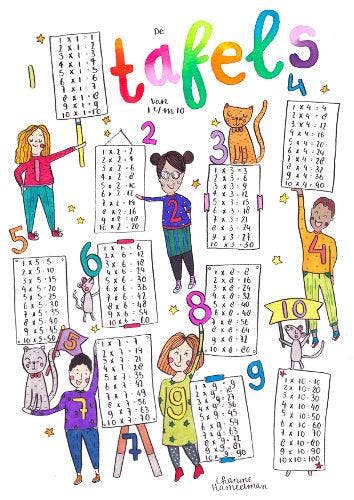 De
tafels
van
1 t/m 10
1
1 x 1 = 1
2 x 1 = 2
3 x 1 = 3
4 x 1 = 4
5 x 1 = 5
6 x 1 = 6
7 x 1 = 7
8 x 1 = 8
9 x 1 = 9
10 x 1 = 10
1
2
1 x 2 = 2
2 x 2 = 4
3 x 2 = 6
4 x 2 = 8
5 x 2 = 10
6 x 2 = 12
7 x 2 = 14
8 x 2 = 16
9 x 2 = 18
10 x 2 = 20
2
3
1 x 3 = 3
2 x 3 = 6
3 x 3 = 9
4 x 3 = 12
5 x 3 = 15
6 x 3 = 18
7 x 3 = 21
8 x 3 = 24
9 x 3 = 27
10 x 3 = 30
4
1 x 4 = 4
2 x 4 = 8
3 x 4 = 12
4 x 4 = 16
5 x 4 = 20
6 x 4 = 24
7 x 4 = 28
8 x 4 = 32
9 x 4 = 36
10 x 4 = 40
4
5
1 x 5 = 5
2 x 5 = 10
3 x 5 = 15
4 x 5 = 20
5 x 5 = 25
6 x 5 = 30
7 x 5 = 35
8 x 5 = 40
9 x 5 = 45
10 x 5 = 50
5
6
1 x 6 = 6
2 x 6 = 12
3 x 6 = 18
4 x 6 = 24
5 x 6 = 30
6 x 6 = 36
7 x 6 = 42
8 x 6 = 48
9 x 6 = 54
10 x 6 = 60
8
1 x 8 = 8
2 x 8 = 16
3 x 8 = 24
4 x 8 = 32
5 x 8 = 40
6 x 8 = 48
7 x 8 = 56
8 x 8 = 64
9 x 8 = 72
10 x 8 = 80
7
1 x 7 = 7
2 x 7 = 14
3 x 7 = 21
4 x 7 = 28
5 x 7 = 35
6 x 7 = 42
7 x 7 = 49
8 x 7 = 56
9 x 7 = 63
10 x 7 = 70
7
9
9
1 x 9 = 9
2 x 9 = 18
3 x 9 = 27
4 x 9 = 36
5 x 9 = 45
6 x 9 = 54
7 x 9 = 63
8 x 9 = 72
9 x 9 = 81
10 x 9 = 90
10
1 x 10 = 10
2 x 10 = 20
3 x 10 = 30
4 x 10 = 40
5 x 10 = 50
6 x 10 = 60
7 x 10 = 70
8 x 10 = 80
9 x 10 = 90
10 x 10 = 100
Hameetman